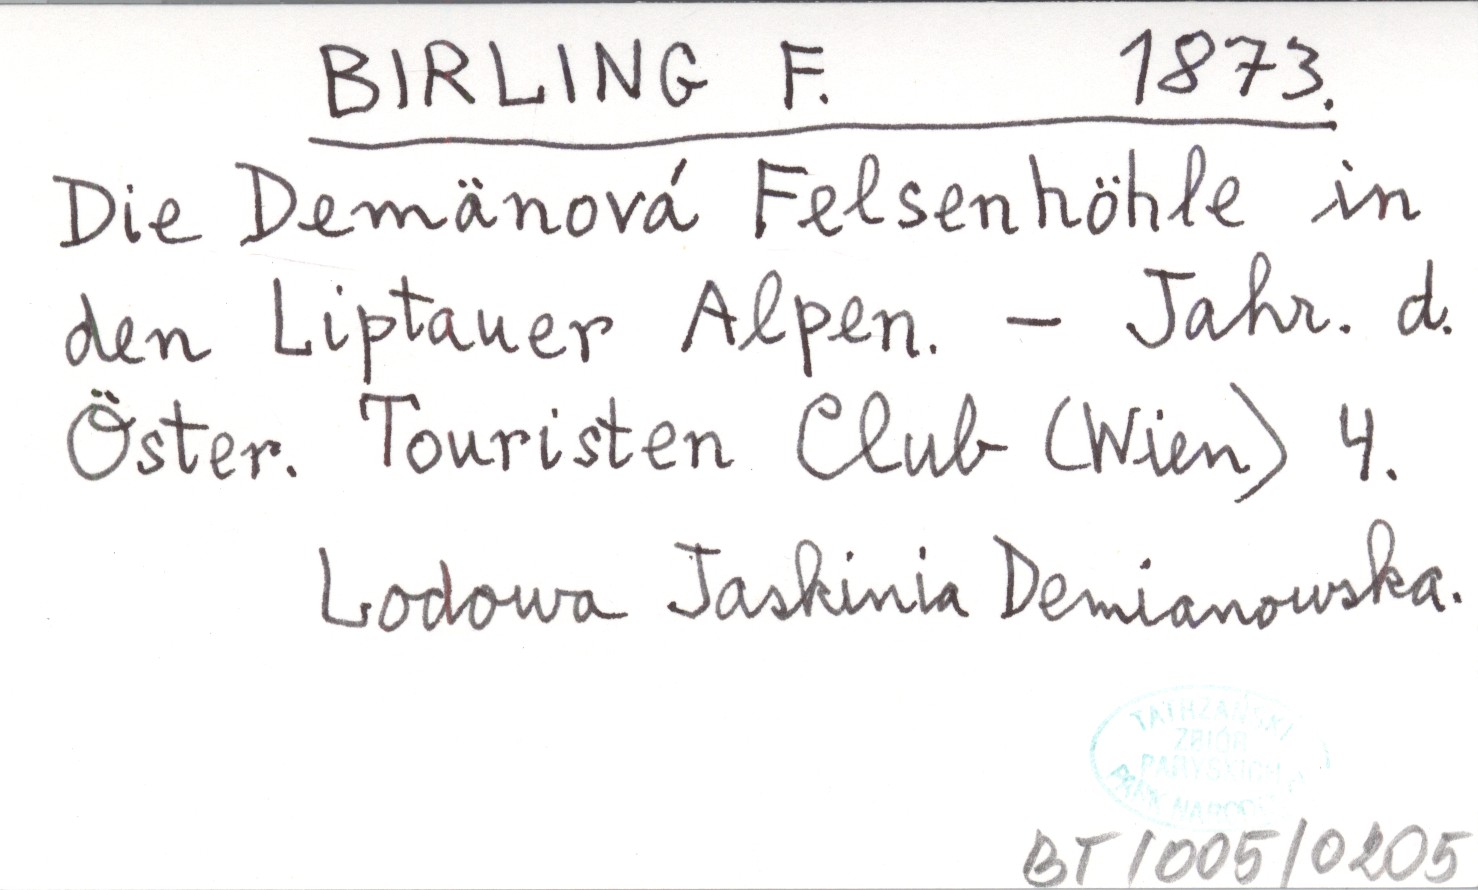 BIRLING F. 1873.
Die Demänová Felsenhöhle in
den Liptauer Alpen. – Jahr. d.
Öster. Touristen Club (Wien) 4.
Lodowa Jaskinia Demianowska.
TATRZAŃSKI
ZBIÓR
PARYSKICH
PARK NARODOWY
BT/005/0205